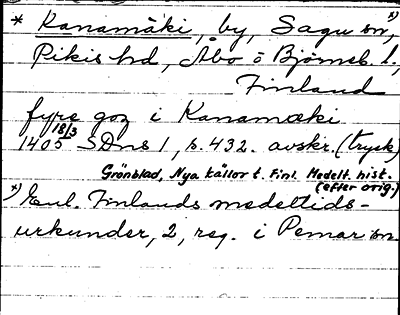 * Kanamäki, by, Sagu sn, *)
Pikis hd, Åbo o Björneb. l.,
Finland
fyre goz i Kanamæki
1405 18/3 SDns 1, s. 432. avskr. (tryck)
Grönblad, Nya källor t. Finl. Medelt. hist.
(efter orig.)
*) Enl. Finlands medeltids-
urkunder, 2, reg. i Pemar sn.